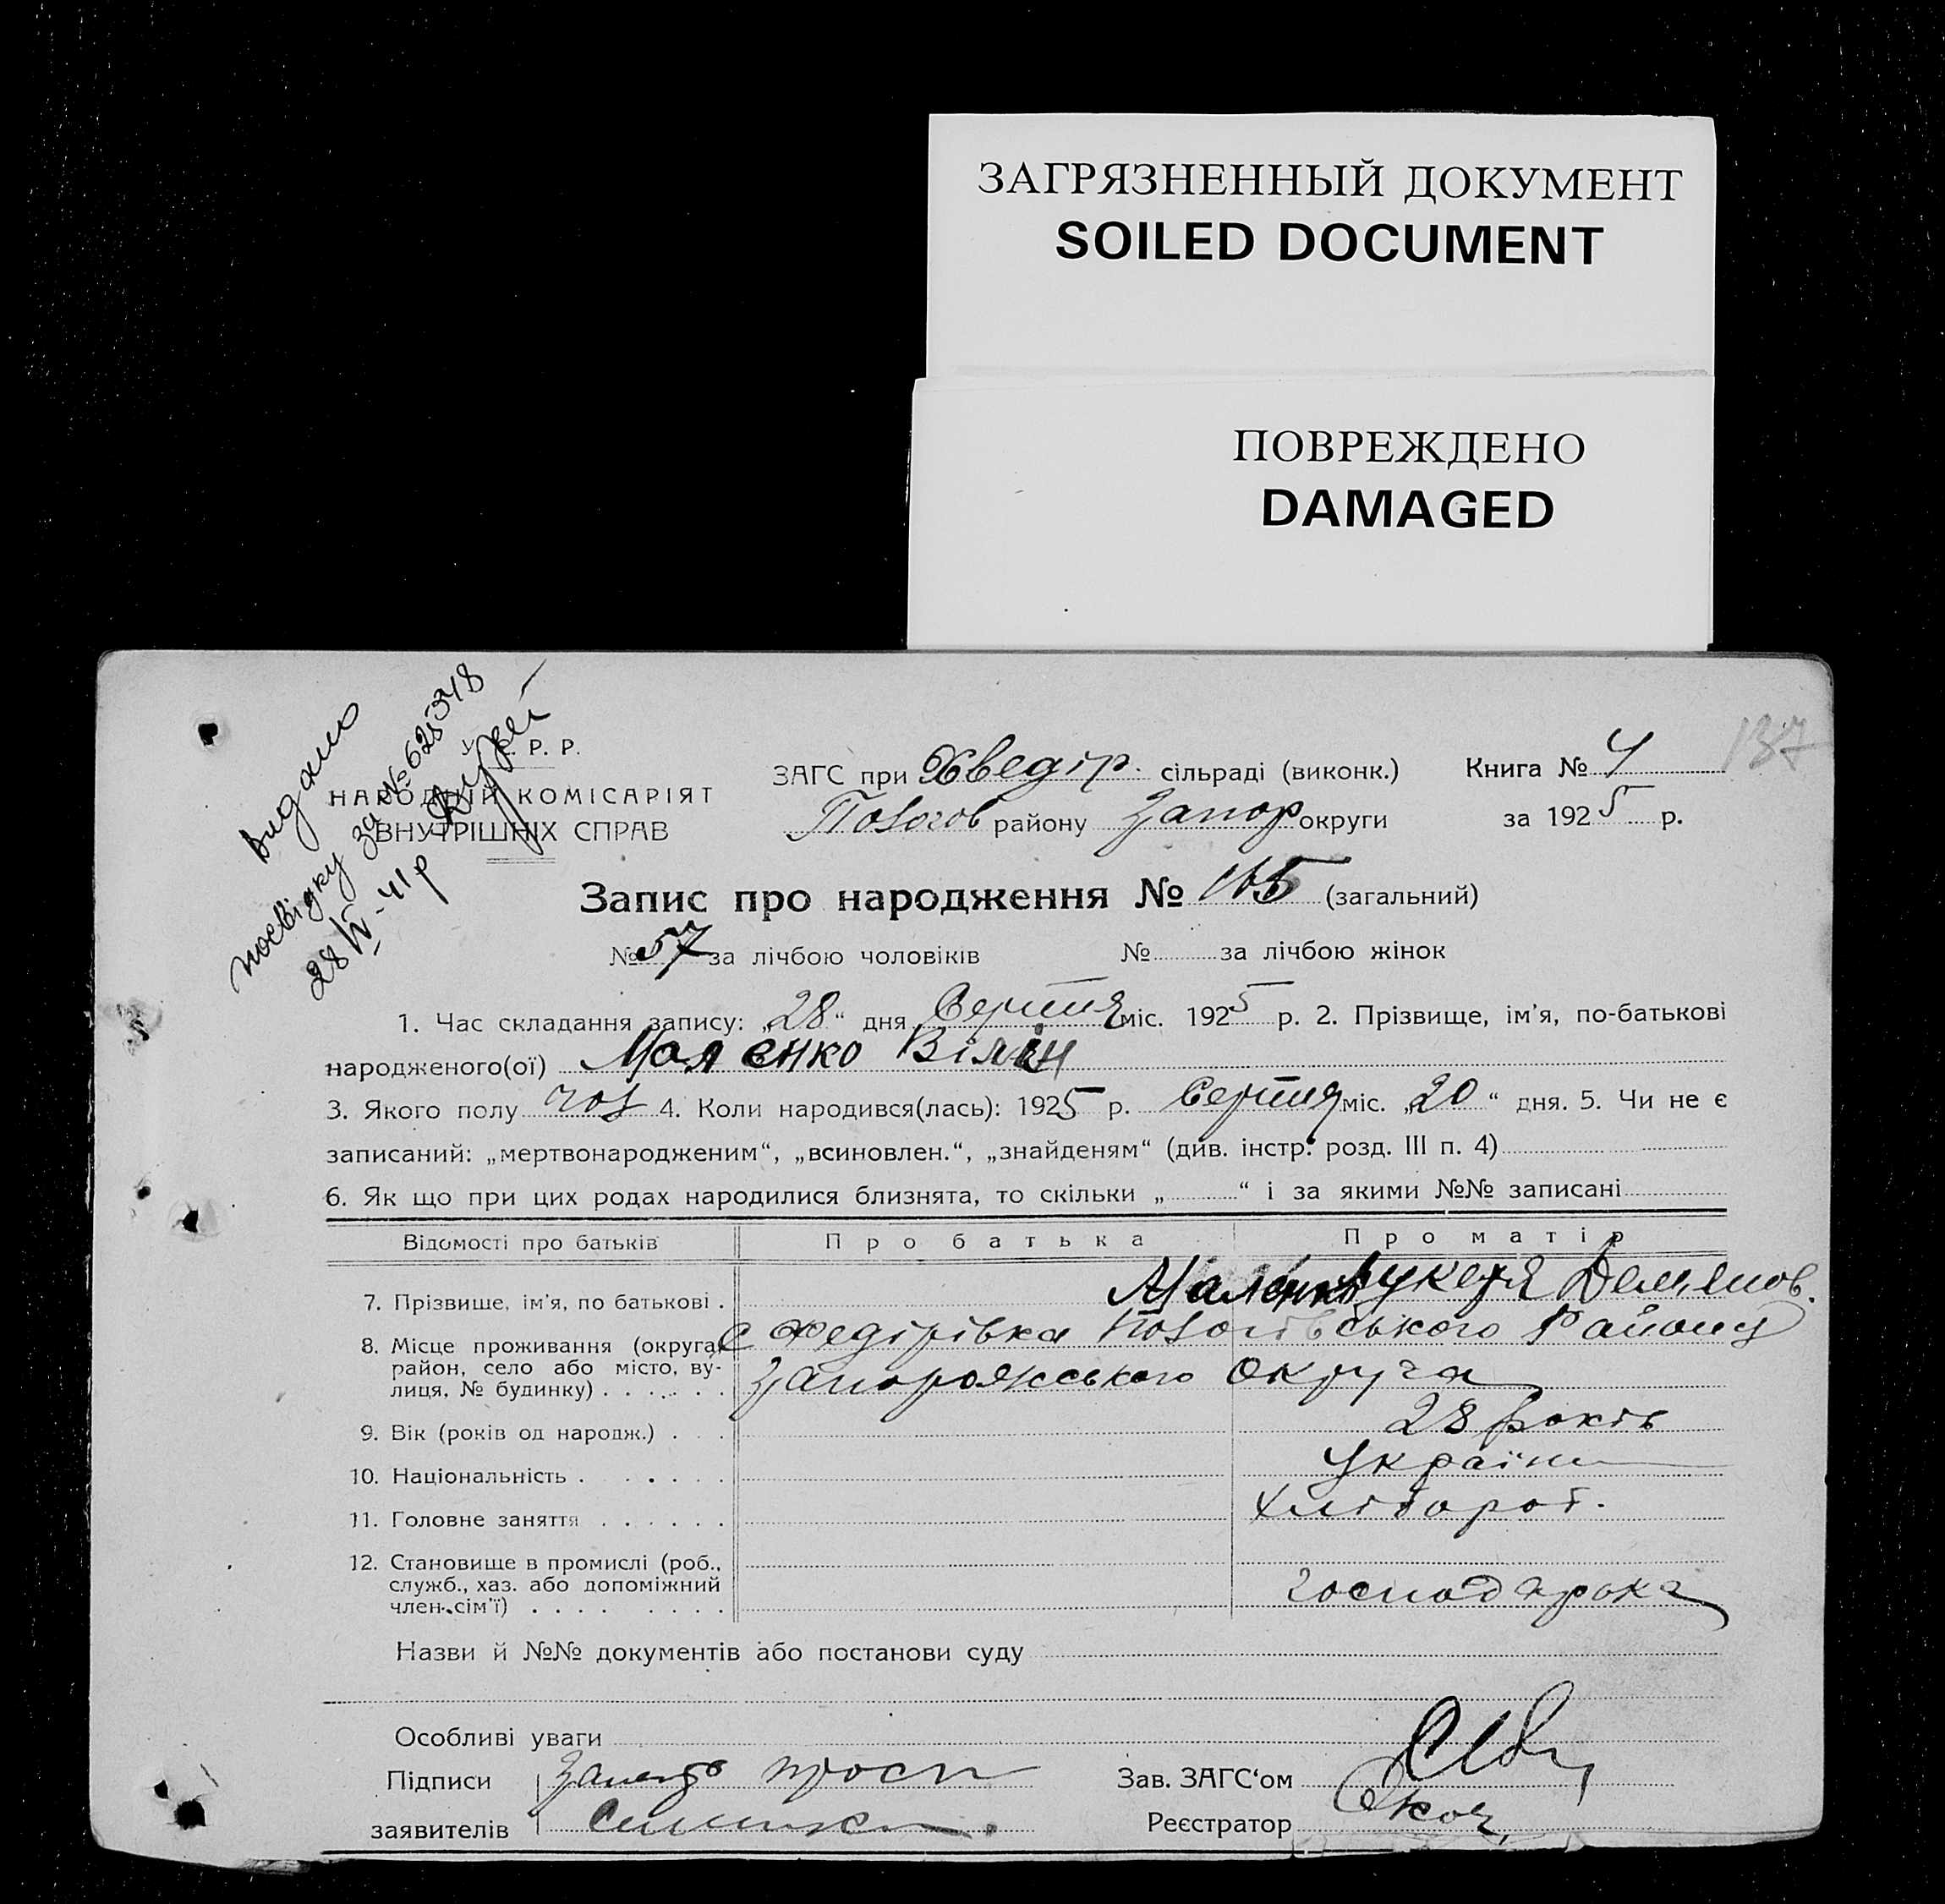 ЗАГРЯЗНЕННЫЙ ДОКУМЕНТ
SOILED DOCUMENT
ПОВРЕЖДЕНО
DAMAGED
видано
посвідку за № 625348
28/IV-41р
137
У. С. Р. Р.
НАРОДНІЙ КОМІСАРІЯТ
ВНУТРІШНІХ СПРАВ
ЗАГС при Хведір. сільраді (виконк.)
Пологов району Запор округи
Книга № 4
за 1925 р.
Запис про народження № 105 (загальний)
№ 57 за лічбою чоловіків № за лічбою жінок
1. Час складання запису: „28“ дня Серпня міс. 1925 р. 2. Прізвище, ім'я, по-батькові
народженого(ої) Маленко Вілін
3. Якого полу чол 4. Коли народився(лась): 1925 р. Серпня міс. „20“ дня. 5. Чи не є
записаний: „мертвонародженим“, „всиновлен.“, „знайденям“ (див. інстр. розд. III п. 4)
6. Як що при цих родах народилися близнята, то скільки „ “ і за якими №№ записані
Відомості про батьків Про батька Про матір
7. Прізвище, ім'я, по батькові . Маленко Лукеря Демянов.
8. Місце проживання (округа, район, село або місто, ву-
лиця, № будинку) . . . . . .
с Федірівка Пологівського Району
Запорожського округа
9. Вік (років од народж.) . . . 28 років
10. Національність . . . . . . Україн
11. Головне заняття . . . . . . Хлібороб.
12. Становище в промислі (роб.,
служб., хаз. або допоміжний
член сім'ї) . . . . . . . . господарка
Назви й №№ документів або постанови суду
Особливі уваги
Підписи
заявителів
Зав. ЗАГС‘ом
Реєстратор